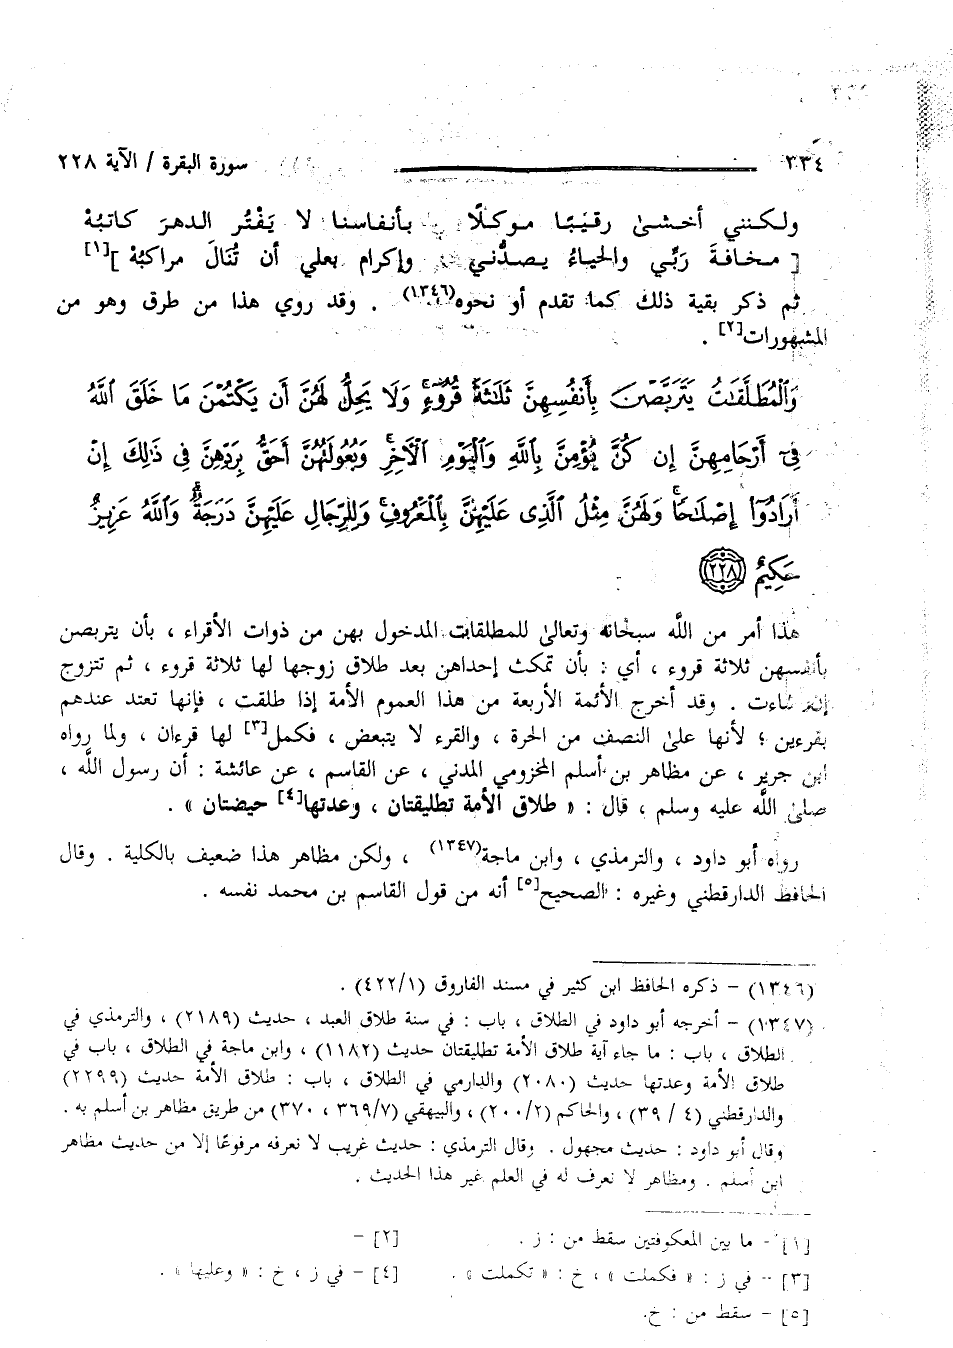 ٣٣٤ سورة البقرة / الآية ٢٢٨
ولـكـنني أخـشـىٰ رقـيـبًـا مـوكـلًا بـأنـفـاسـنا لا يَـفْـتُـر الـدهـرَ كـاتـبُـهْ
[ مـخـافـةَ رَبِّـي والحـيـاءُ يـصـدُّنـي وإكـرام بـعلي أن تُـنَالَ مراكـبُهْ ][١]
ثم ذكر بقية ذلك كما تقدم أو نحوه(١٣٤٦) . وقد روي هذا من طرق وهو من
المشهورات[٢] .
وَٱلْمُطَلَّقَٰتُ يَتَرَبَّصْنَ بِأَنفُسِهِنَّ ثَلَٰثَةَ قُرُوٓءٍ ۚ وَلَا يَحِلُّ لَهُنَّ أَن يَكْتُمْنَ مَا خَلَقَ ٱللَّهُ
فِىٓ أَرْحَامِهِنَّ إِن كُنَّ يُؤْمِنَّ بِٱللَّهِ وَٱلْيَوْمِ ٱلْءَاخِرِ ۚ وَبُعُولَتُهُنَّ أَحَقُّ بِرَدِّهِنَّ فِى ذَٰلِكَ إِنْ
أَرَادُوٓا۟ إِصْلَٰحًا ۚ وَلَهُنَّ مِثْلُ ٱلَّذِى عَلَيْهِنَّ بِٱلْمَعْرُوفِ ۚ وَلِلرِّجَالِ عَلَيْهِنَّ دَرَجَةٌ ۗ وَٱللَّهُ عَزِيزٌ
حَكِيمٌ ﴿٢٢٨﴾
هذا أمر من اللَّه سبحانه وتعالىٰ للمطلقات المدخول بهن من ذوات الأقراء ، بأن يتربصن
بأنفسهن ثلاثة قروء ، أي : بأن تمكث إحداهن بعد طلاق زوجها لها ثلاثة قروء ، ثم تتزوج
إن شاءت . وقد أخرج الأئمة الأربعة من هذا العموم الأمة إذا طلقت ، فإنها تعتد عندهم
بقرءين ؛ لأنها علىٰ النصف من الحرة ، والقرء لا يتبعض ، فكمل[٣] لها قرءان ، ولما رواه
ابن جرير ، عن مظاهر بن أسلم المخزومي المدني ، عن القاسم ، عن عائشة : أن رسول اللَّه ،
صلىٰ اللَّه عليه وسلم ، قال : « طلاق الأمة تطليقتان ، وعدتها[٤] حيضتان » .
رواه أبو داود ، والترمذي ، وابن ماجة(١٣٤٧) ، ولكن مظاهر هذا ضعيف بالكلية . وقال
الحافظ الدارقطني وغيره : الصحيح[٥] أنه من قول القاسم بن محمد نفسه .
(١٣٤٦) - ذكره الحافظ ابن كثير في مسند الفاروق (٤٢٢/١) .
(١٣٤٧) - أخرجه أبو داود في الطلاق ، باب : في سنة طلاق العبد ، حديث (٢١٨٩) ، والترمذي في
الطلاق ، باب : ما جاء آية طلاق الأمة تطليقتان حديث (١١٨٢) ، وابن ماجة في الطلاق ، باب في
طلاق الأمة وعدتها حديث (٢٠٨٠) والدارمي في الطلاق ، باب : طلاق الأمة حديث (٢٢٩٩)
والدارقطني (٤ / ٣٩) ، والحاكم (٢٠٠/٢) ، والبيهقي (٣٦٩/٧ ، ٣٧٠) من طريق مظاهر بن أسلم به .
وقال أبو داود : حديث مجهول . وقال الترمذي : حديث غريب لا نعرفه مرفوعًا إلا من حديث مظاهر
ابن أسلم . ومظاهر لا نعرف له في العلم غير هذا الحديث .
[١] - ما بين المعكوفتين سقط من : ز . [٢] -
[٣] - في ز : « فكملت » ، خ : « تكملت » . [٤] - في ز ، خ : « وعليها » .
[٥] - سقط من : خ.